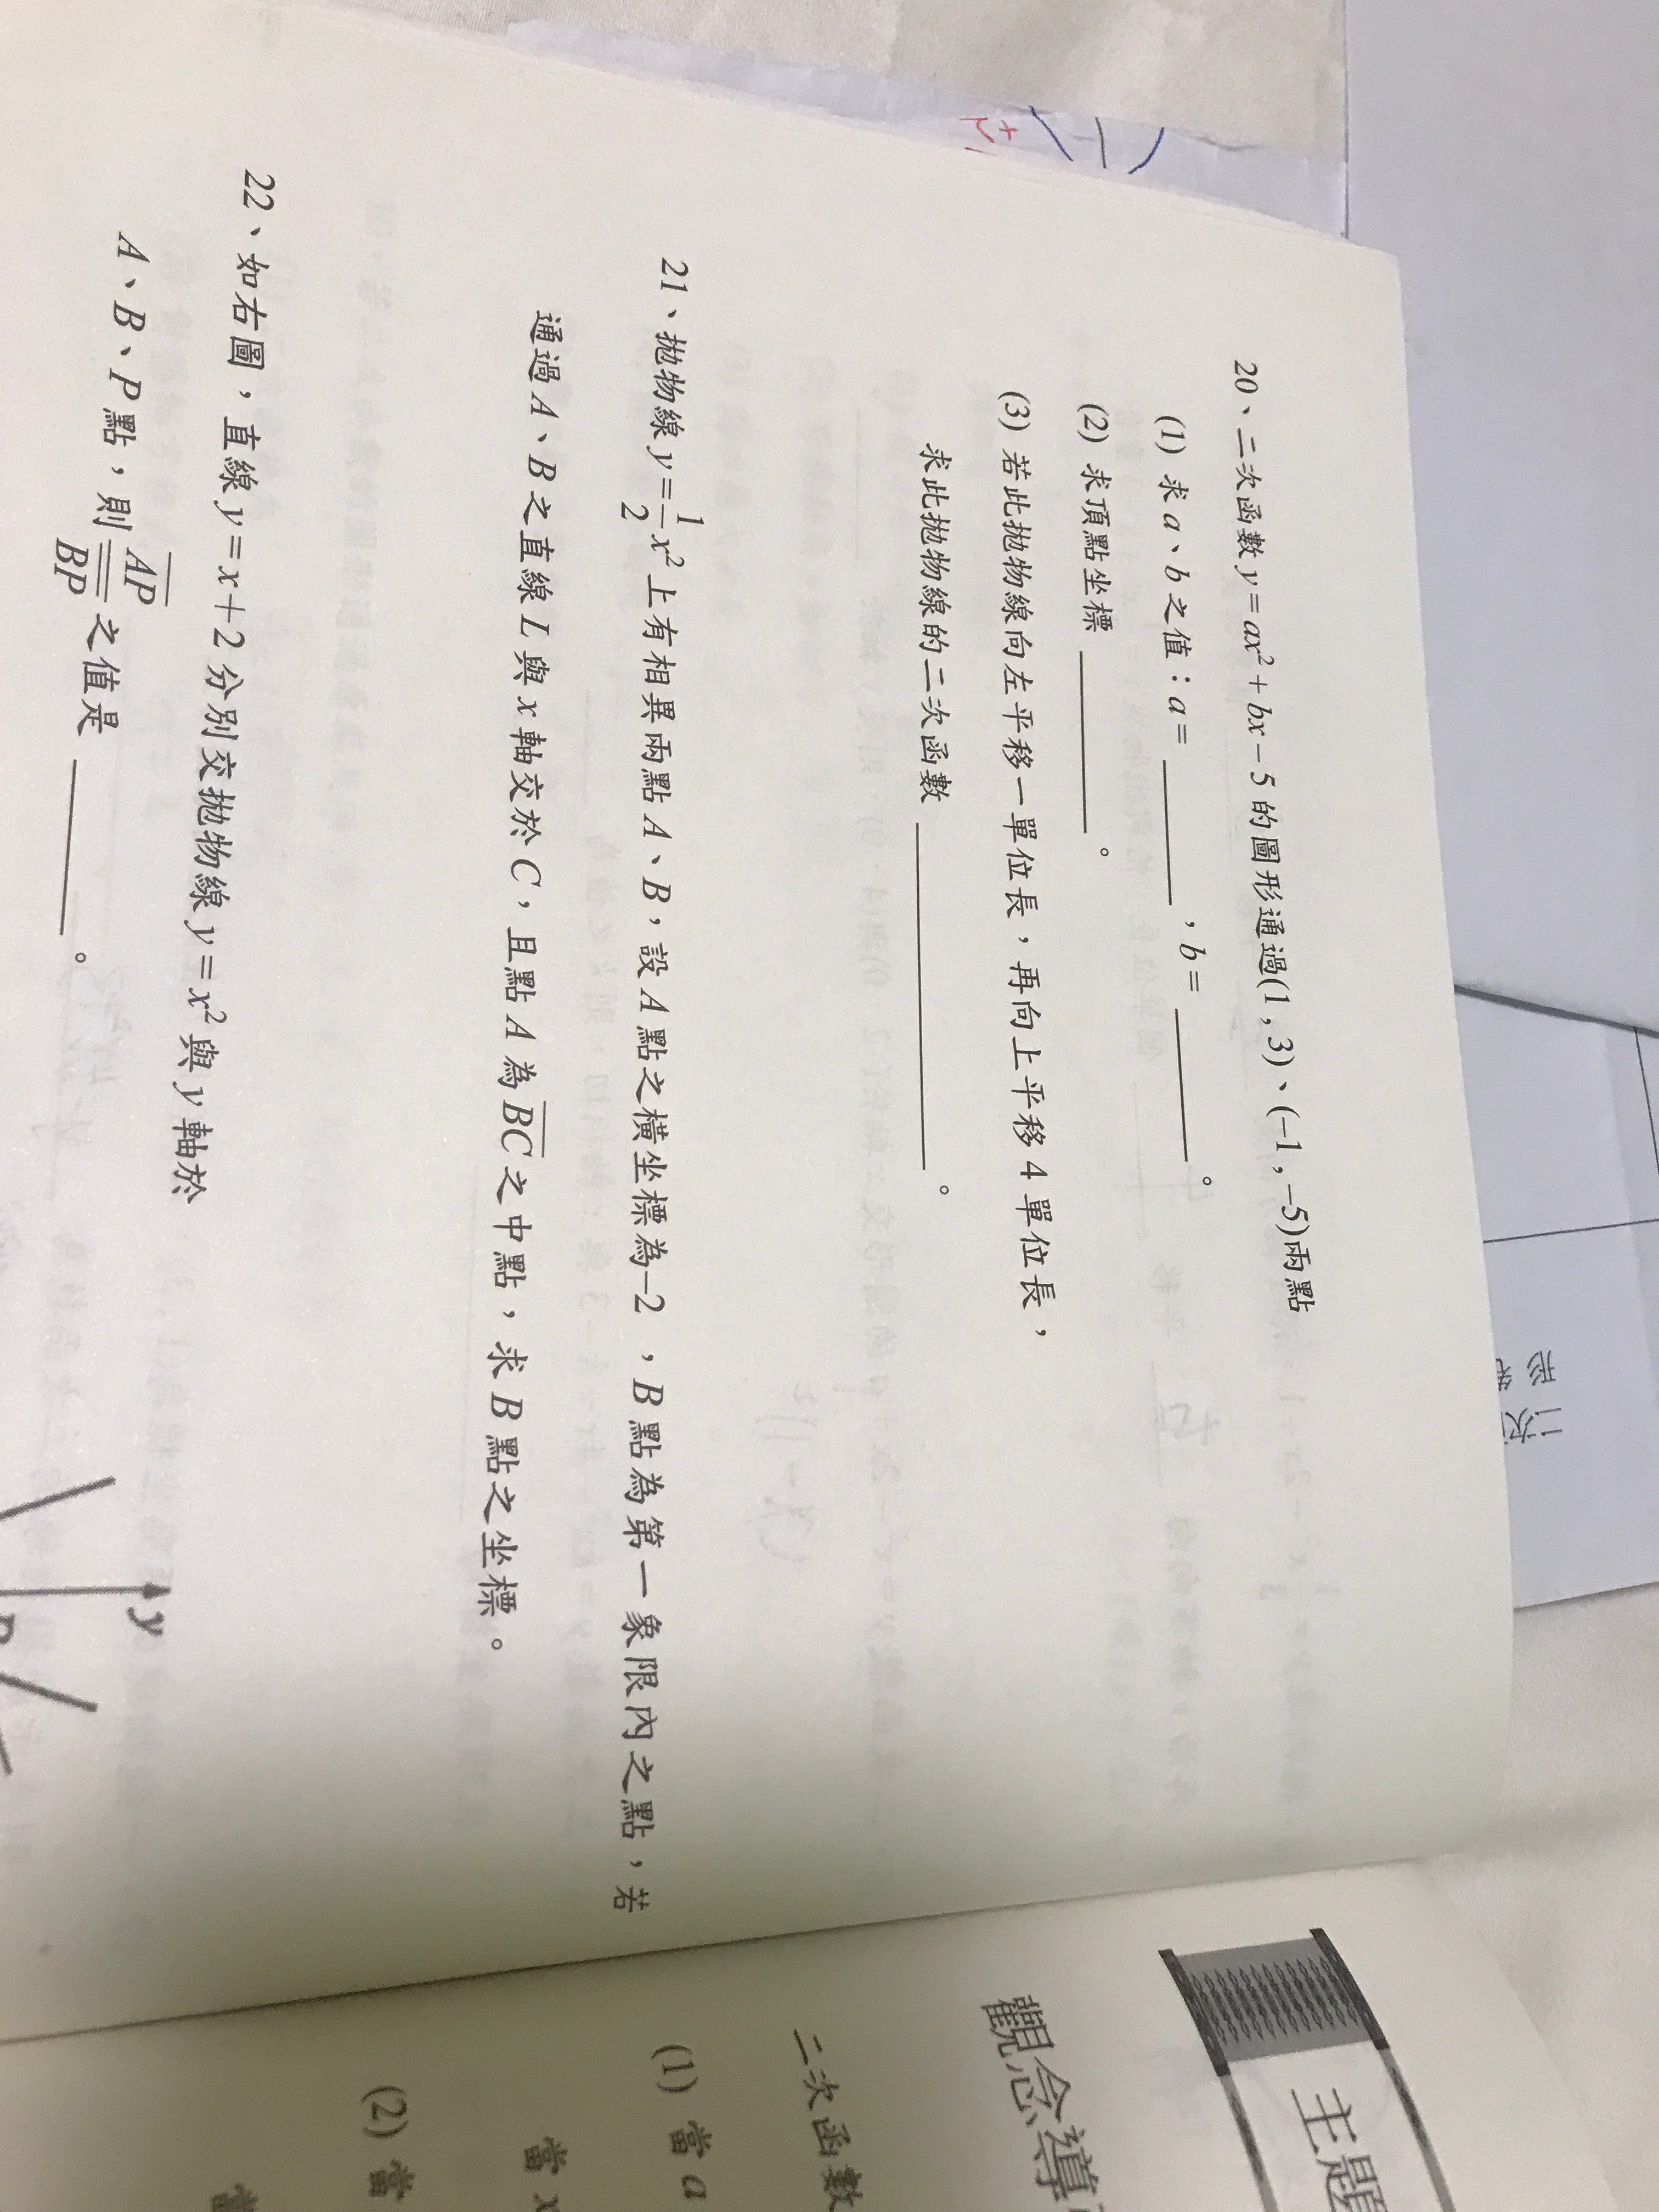 20、二次函數 y=ax²+bx-5 的圖形通過(1,3)、(-1,-5)兩點
(1) 求 a、b 之值：a=＿＿＿＿，b=＿＿＿＿。
(2) 求頂點坐標＿＿＿＿。
(3) 若此拋物線向左平移一單位長，再向上平移 4 單位長，
求此拋物線的二次函數＿＿＿＿＿＿＿＿。
21、拋物線 y=1/2 x² 上有相異兩點 A、B，設 A 點之橫坐標為-2，B 點為第一象限內之點，若
通過 A、B 之直線 L 與 x 軸交於 C，且點 A 為 BC 之中點，求 B 點之坐標。
22、如右圖，直線 y=x+2 分別交拋物線 y=x² 與 y 軸於
A、B、P 點，則 AP/BP 之值是＿＿＿＿。
y
主題
觀念導
二次函數
(1) 當 a
當 x
(2) 當
當